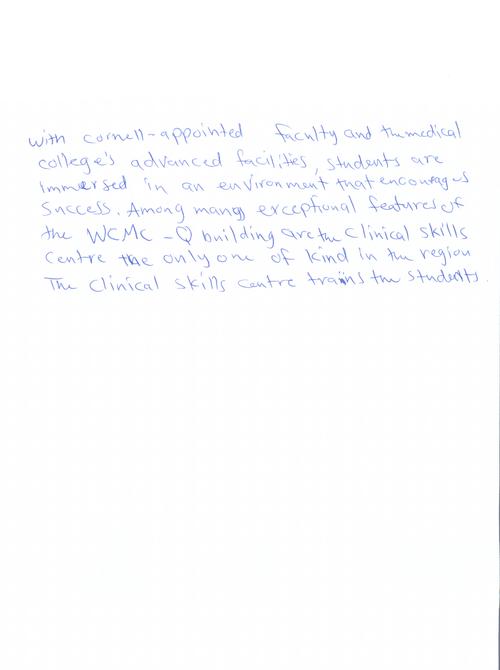 with cornell-appointed faculty and the medical
college's advanced facilities, students are
immersed in an environment that encourages
success. Among many exceptional features of
the WCMC-Q building are the Clinical skills
Centre the only one of kind in the region
The Clinical skills centre trains the students.